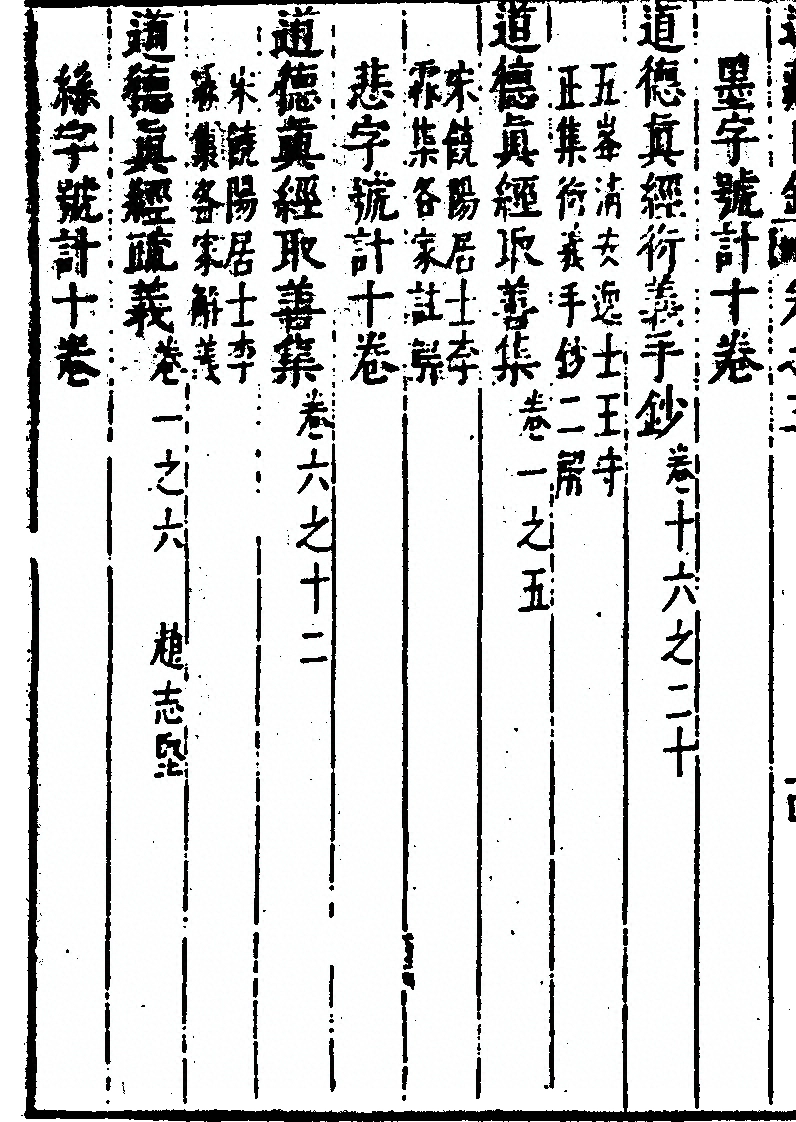 墨字號計十卷
道德眞經衍義手鈔卷十六之二十
五峯清安逸士王守
正集衍義手鈔二解
道德眞經取善集卷一之五
宋饒陽居士李
霖集各家註解
悲字號計十卷
道德眞經取善集卷六之十二
宋饒陽居士李
霖集各家解義
道德眞經疏義卷一之六 趙志堅
絲字號計十卷